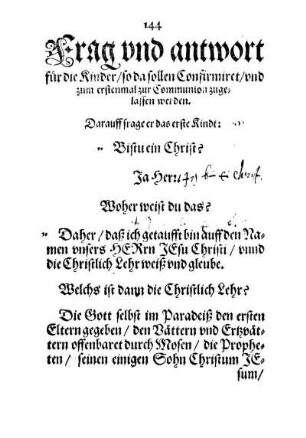 144
Frag vnd antwort
für die Kinder/ so da sollen Confirmiret/ vnd
zum erstenmal zur Communion zuge-
lassen werden.
Darauff frage er das erste Kindt:
" Bistu ein Christ?
Ja Herr/
Woher weist du das?
" Daher/ daß ich getaufft bin auff den Na-
men vnsers HERrn JEsu Christi/ vnnd
die Christlich Lehr weiß vnd gleube.
Welchs ist dann die Christlich Lehr?
Die Gott selbst im Paradeiß den ersten
Eltern gegeben/ den Vättern vnd Ertzvät-
tern offenbaret durch Mosen/ die Prophe-
ten/ seinen einigen Sohn Christum JE-
sum/